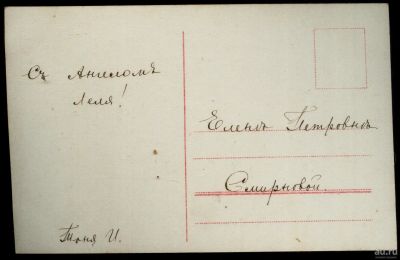 Съ Ангеломъ
Леля!
Тоня И.
Еленѣ Петровнѣ
Смирновой.
au.ru